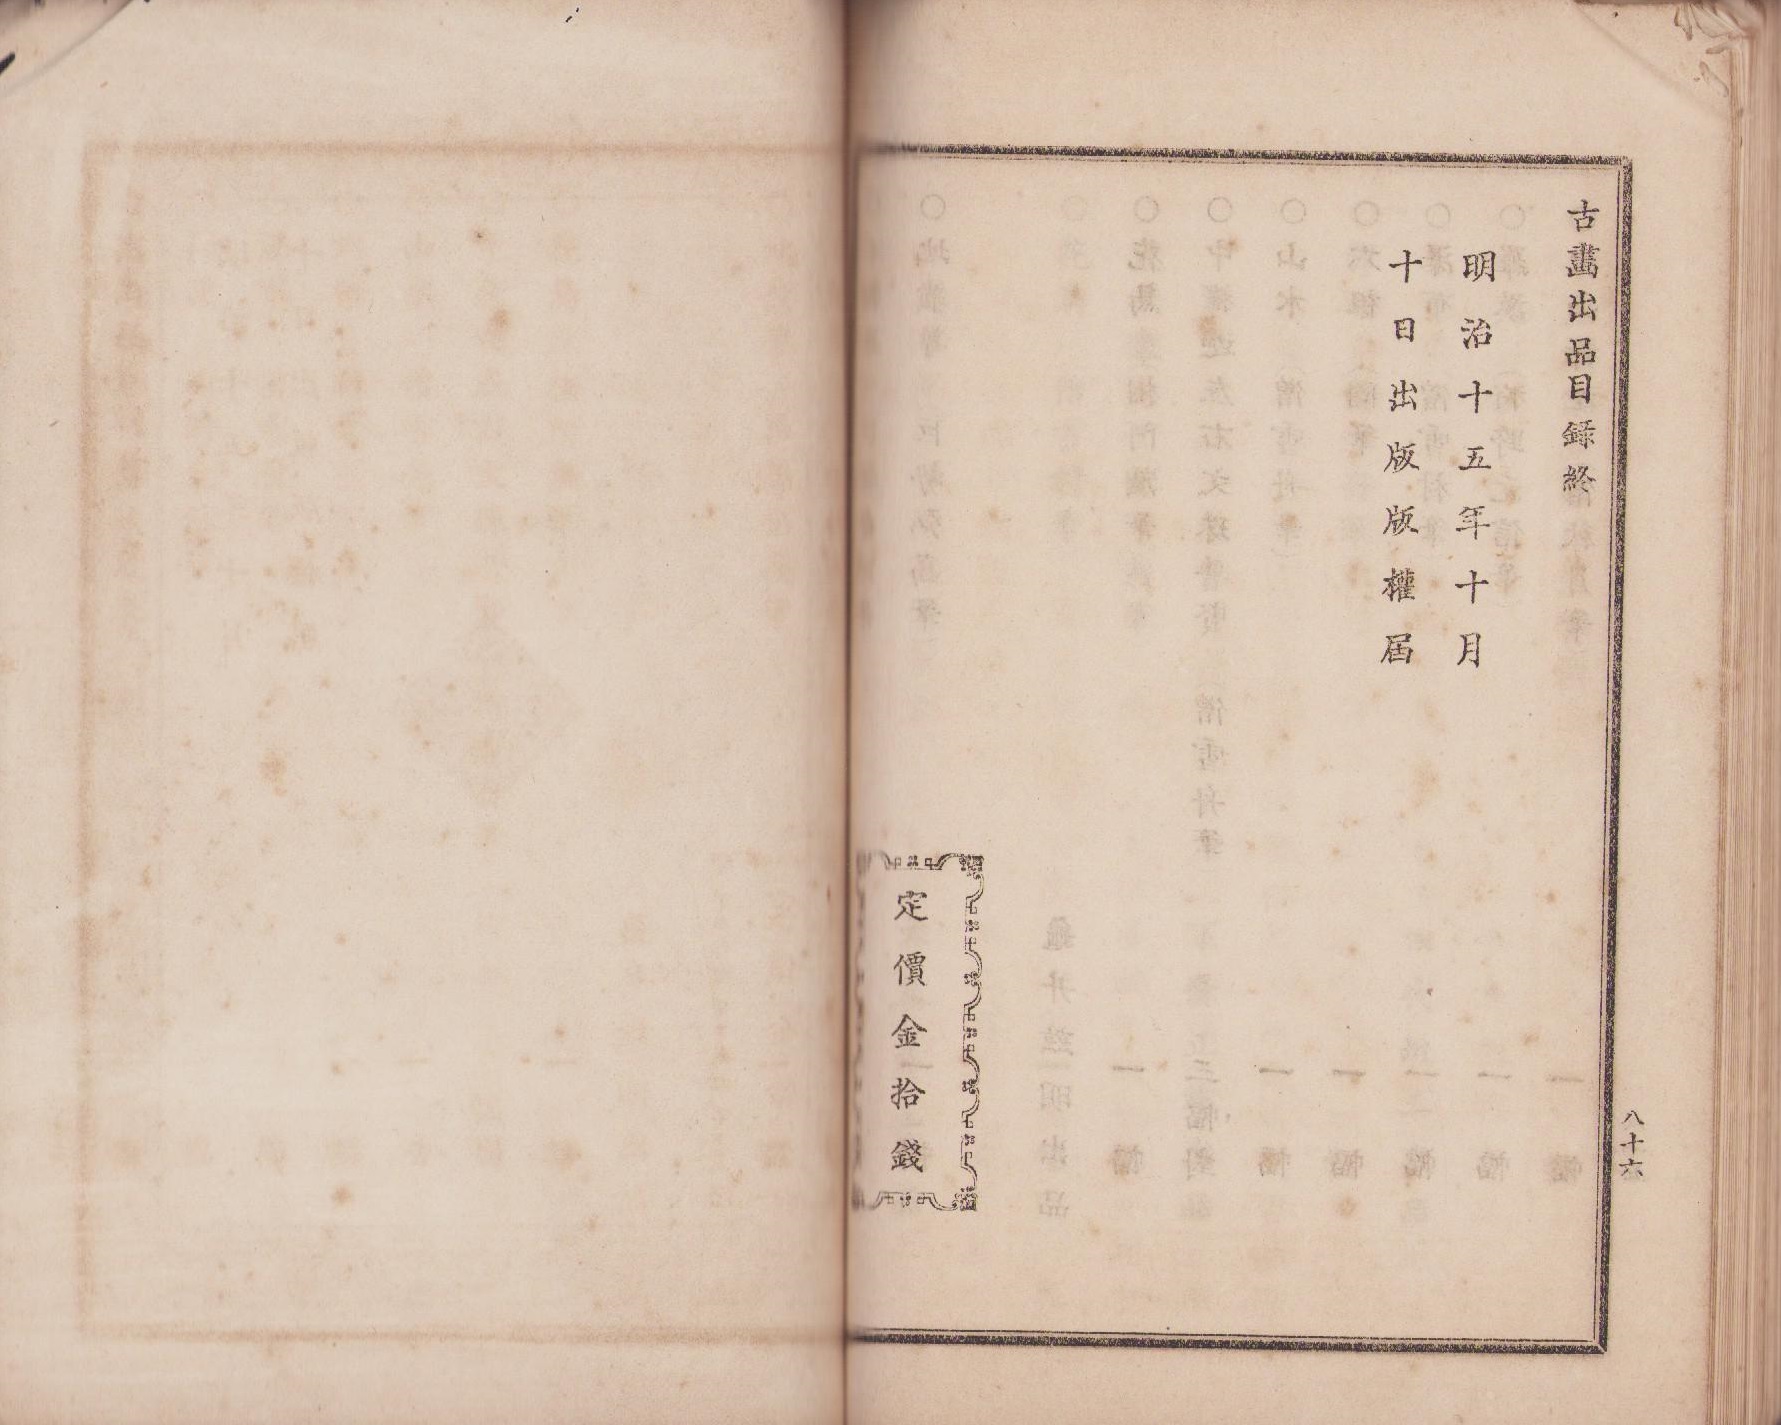 古畫出品目錄終
明治十五年十月
十日出版版權屆
定價金拾錢
八十六